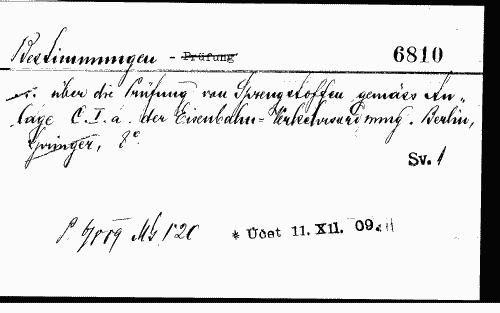 Bestimmungen - Prüfung 6810
über die Prüfung von Sprengstoffen gemäss An-
lage C.I.a. der Eisenbahn-Verkehrsordnung. Berlin,
Springer, 8°.
Sv. 1
* Účet 11. XII. 09.